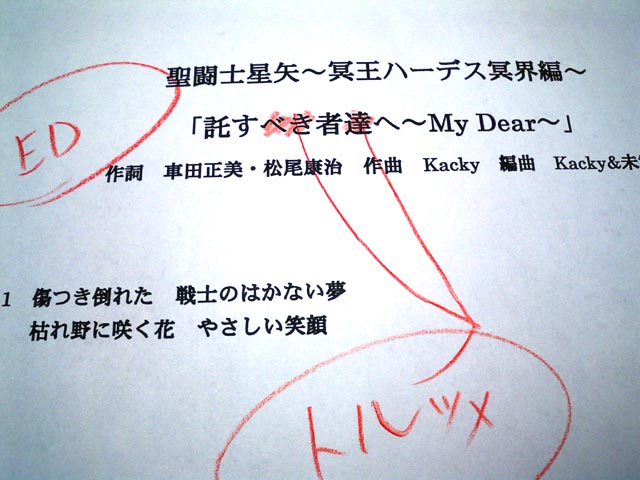 聖闘士星矢～冥王ハーデス冥界編～
ED
「託すべき者達へ～My Dear～」
作詞 車田正美・松尾康治 作曲 Kacky 編曲 Kacky&未
1 傷つき倒れた 戦士のはかない夢
枯れ野に咲く花 やさしい笑顔
トルツメ